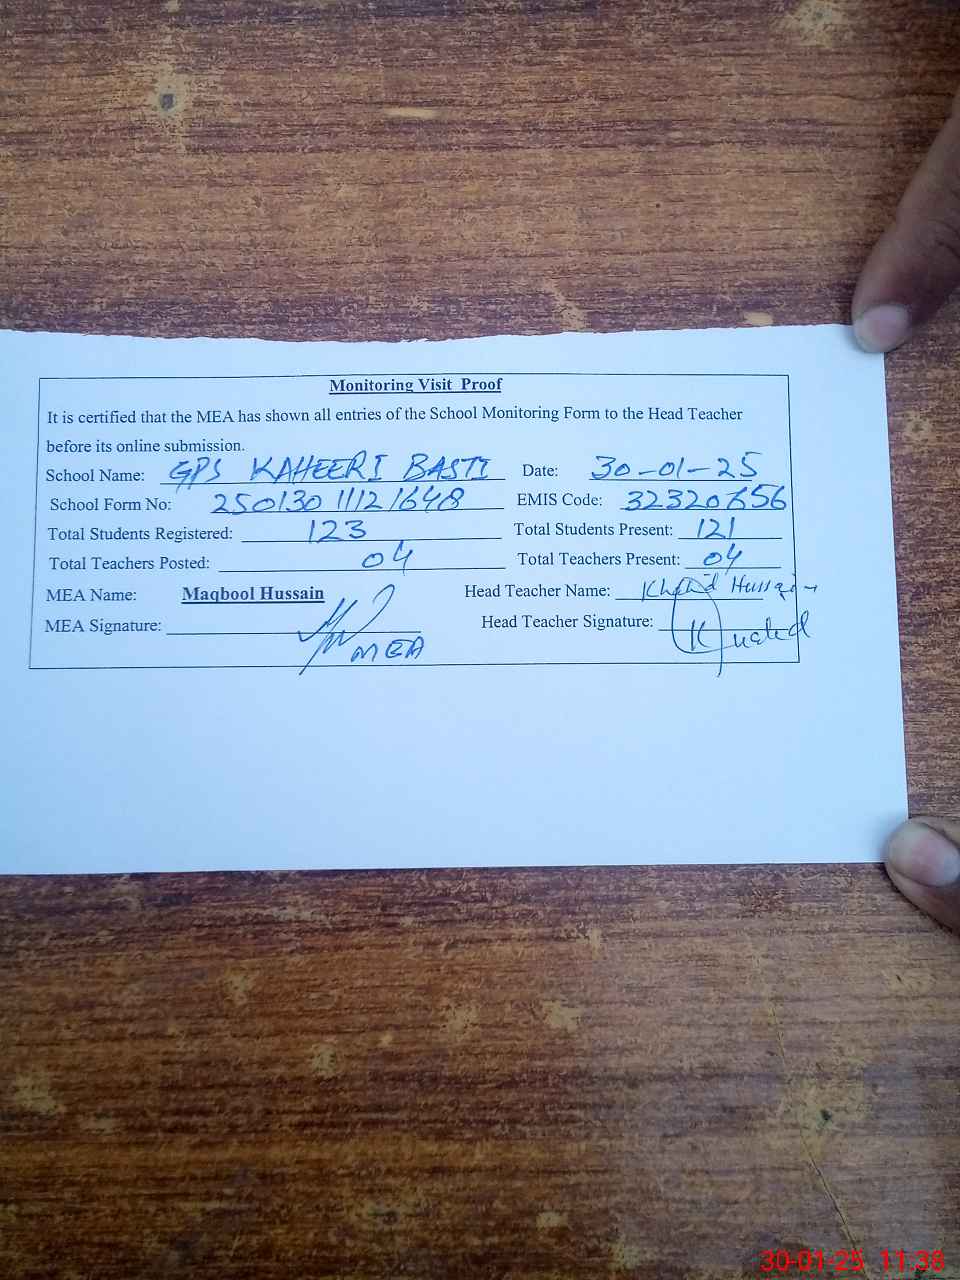 Monitoring Visit Proof
It is certified that the MEA has shown all entries of the School Monitoring Form to the Head Teacher
before its online submission.
School Name: GPS KAHEERI BASTI Date: 30-01-25
School Form No: 250130 1112 1648 EMIS Code: 32320656
Total Students Registered: 123 Total Students Present: 121
Total Teachers Posted: 04 Total Teachers Present: 04
MEA Name: Maqbool Hussain Head Teacher Name: Khalid Hussain
MEA Signature: MEA Head Teacher Signature: Khalid
30-01-25 11:38